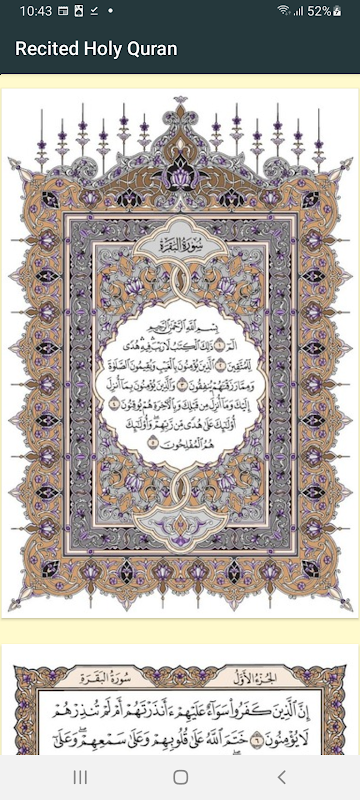 10:43
52%
Recited Holy Quran
سُورَةُ البَقَرَةِ
بِسْمِ ٱللَّهِ ٱلرَّحْمَٰنِ ٱلرَّحِيمِ
الٓمٓ ١ ذَٰلِكَ ٱلْكِتَٰبُ لَا رَيْبَ فِيهِ هُدًى
لِّلْمُتَّقِينَ ٢ ٱلَّذِينَ يُؤْمِنُونَ بِٱلْغَيْبِ وَيُقِيمُونَ ٱلصَّلَوٰةَ
وَمِمَّا رَزَقْنَٰهُمْ يُنفِقُونَ ٣ وَٱلَّذِينَ يُؤْمِنُونَ بِمَآ أُنزِلَ
إِلَيْكَ وَمَآ أُنزِلَ مِن قَبْلِكَ وَبِٱلْءَاخِرَةِ هُمْ يُوقِنُونَ ٤
أُو۟لَٰٓئِكَ عَلَىٰ هُدًى مِّن رَّبِّهِمْ وَأُو۟لَٰٓئِكَ
هُمُ ٱلْمُفْلِحُونَ ٥
الجُزْءُ الأَوَّلُ سُورَةُ البَقَرَةِ
إِنَّ ٱلَّذِينَ كَفَرُوا۟ سَوَآءٌ عَلَيْهِمْ ءَأَنذَرْتَهُمْ أَمْ لَمْ تُنذِرْهُمْ
لَا يُؤْمِنُونَ ٦ خَتَمَ ٱللَّهُ عَلَىٰ قُلُوبِهِمْ وَعَلَىٰ سَمْعِهِمْ ۖ وَعَلَىٰٓ